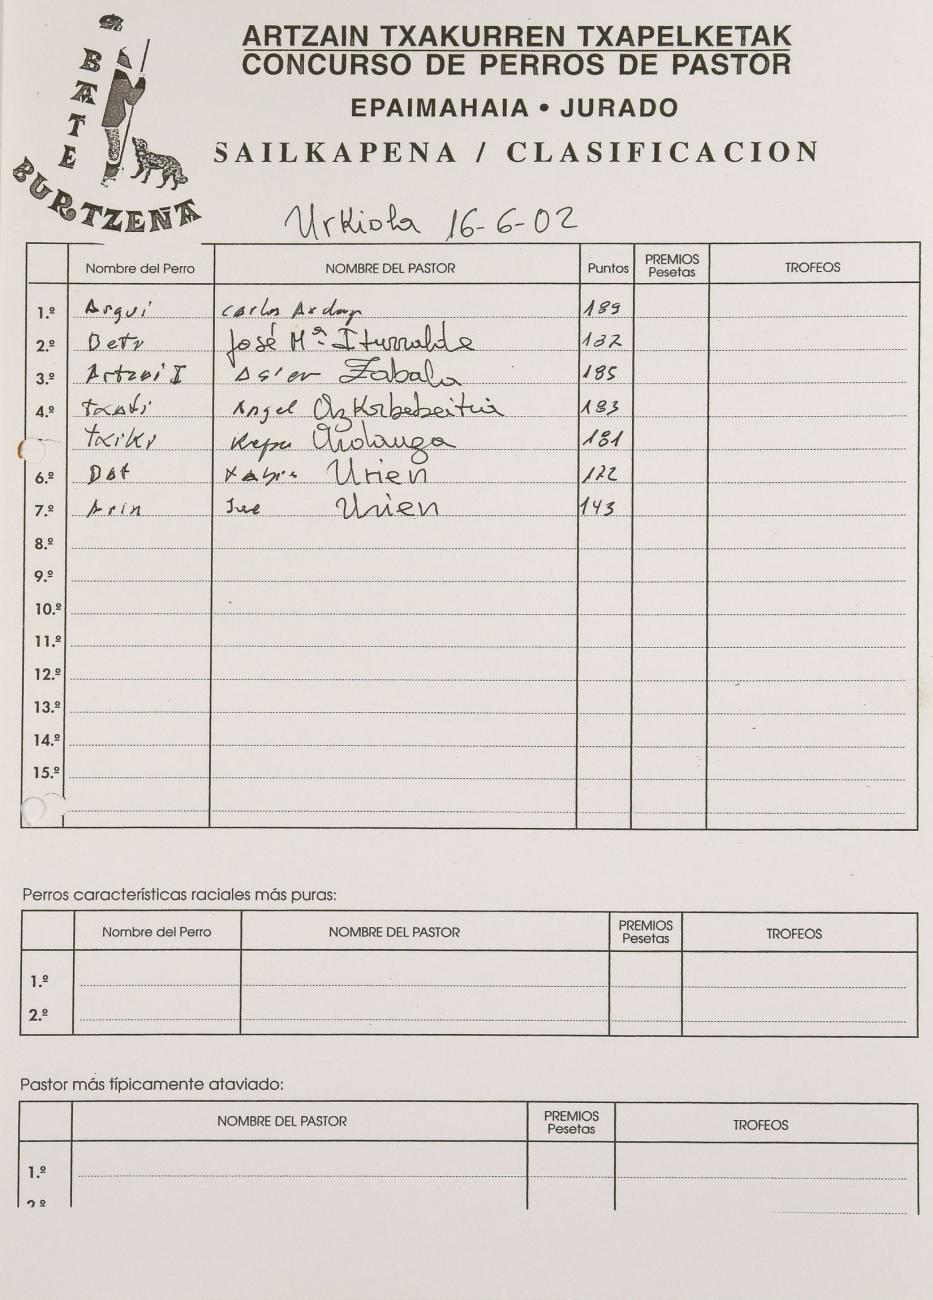 BATE
BURTZEÑA
ARTZAIN TXAKURREN TXAPELKETAK
CONCURSO DE PERROS DE PASTOR
EPAIMAHAIA • JURADO
SAILKAPENA / CLASIFICACION
Urkiola 16-6-02
Nombre del Perro NOMBRE DEL PASTOR Puntos PREMIOS Pesetas TROFEOS
1.º Argui Carlos 189
2.º Bety José Mª Iturralde
3.º Artzai I Asier Zabala 185
4.º Angel Azkorbebeitia 183
txiky Kepa 181
6.º Xabier Urien
7.º Arin Urien 143
8.º
9.º
10.º
11.º
12.º
13.º
14.º
15.º
Perros características raciales más puras:
Nombre del Perro NOMBRE DEL PASTOR PREMIOS Pesetas TROFEOS
1.º
2.º
Pastor más típicamente ataviado:
NOMBRE DEL PASTOR PREMIOS Pesetas TROFEOS
1.º
2.º